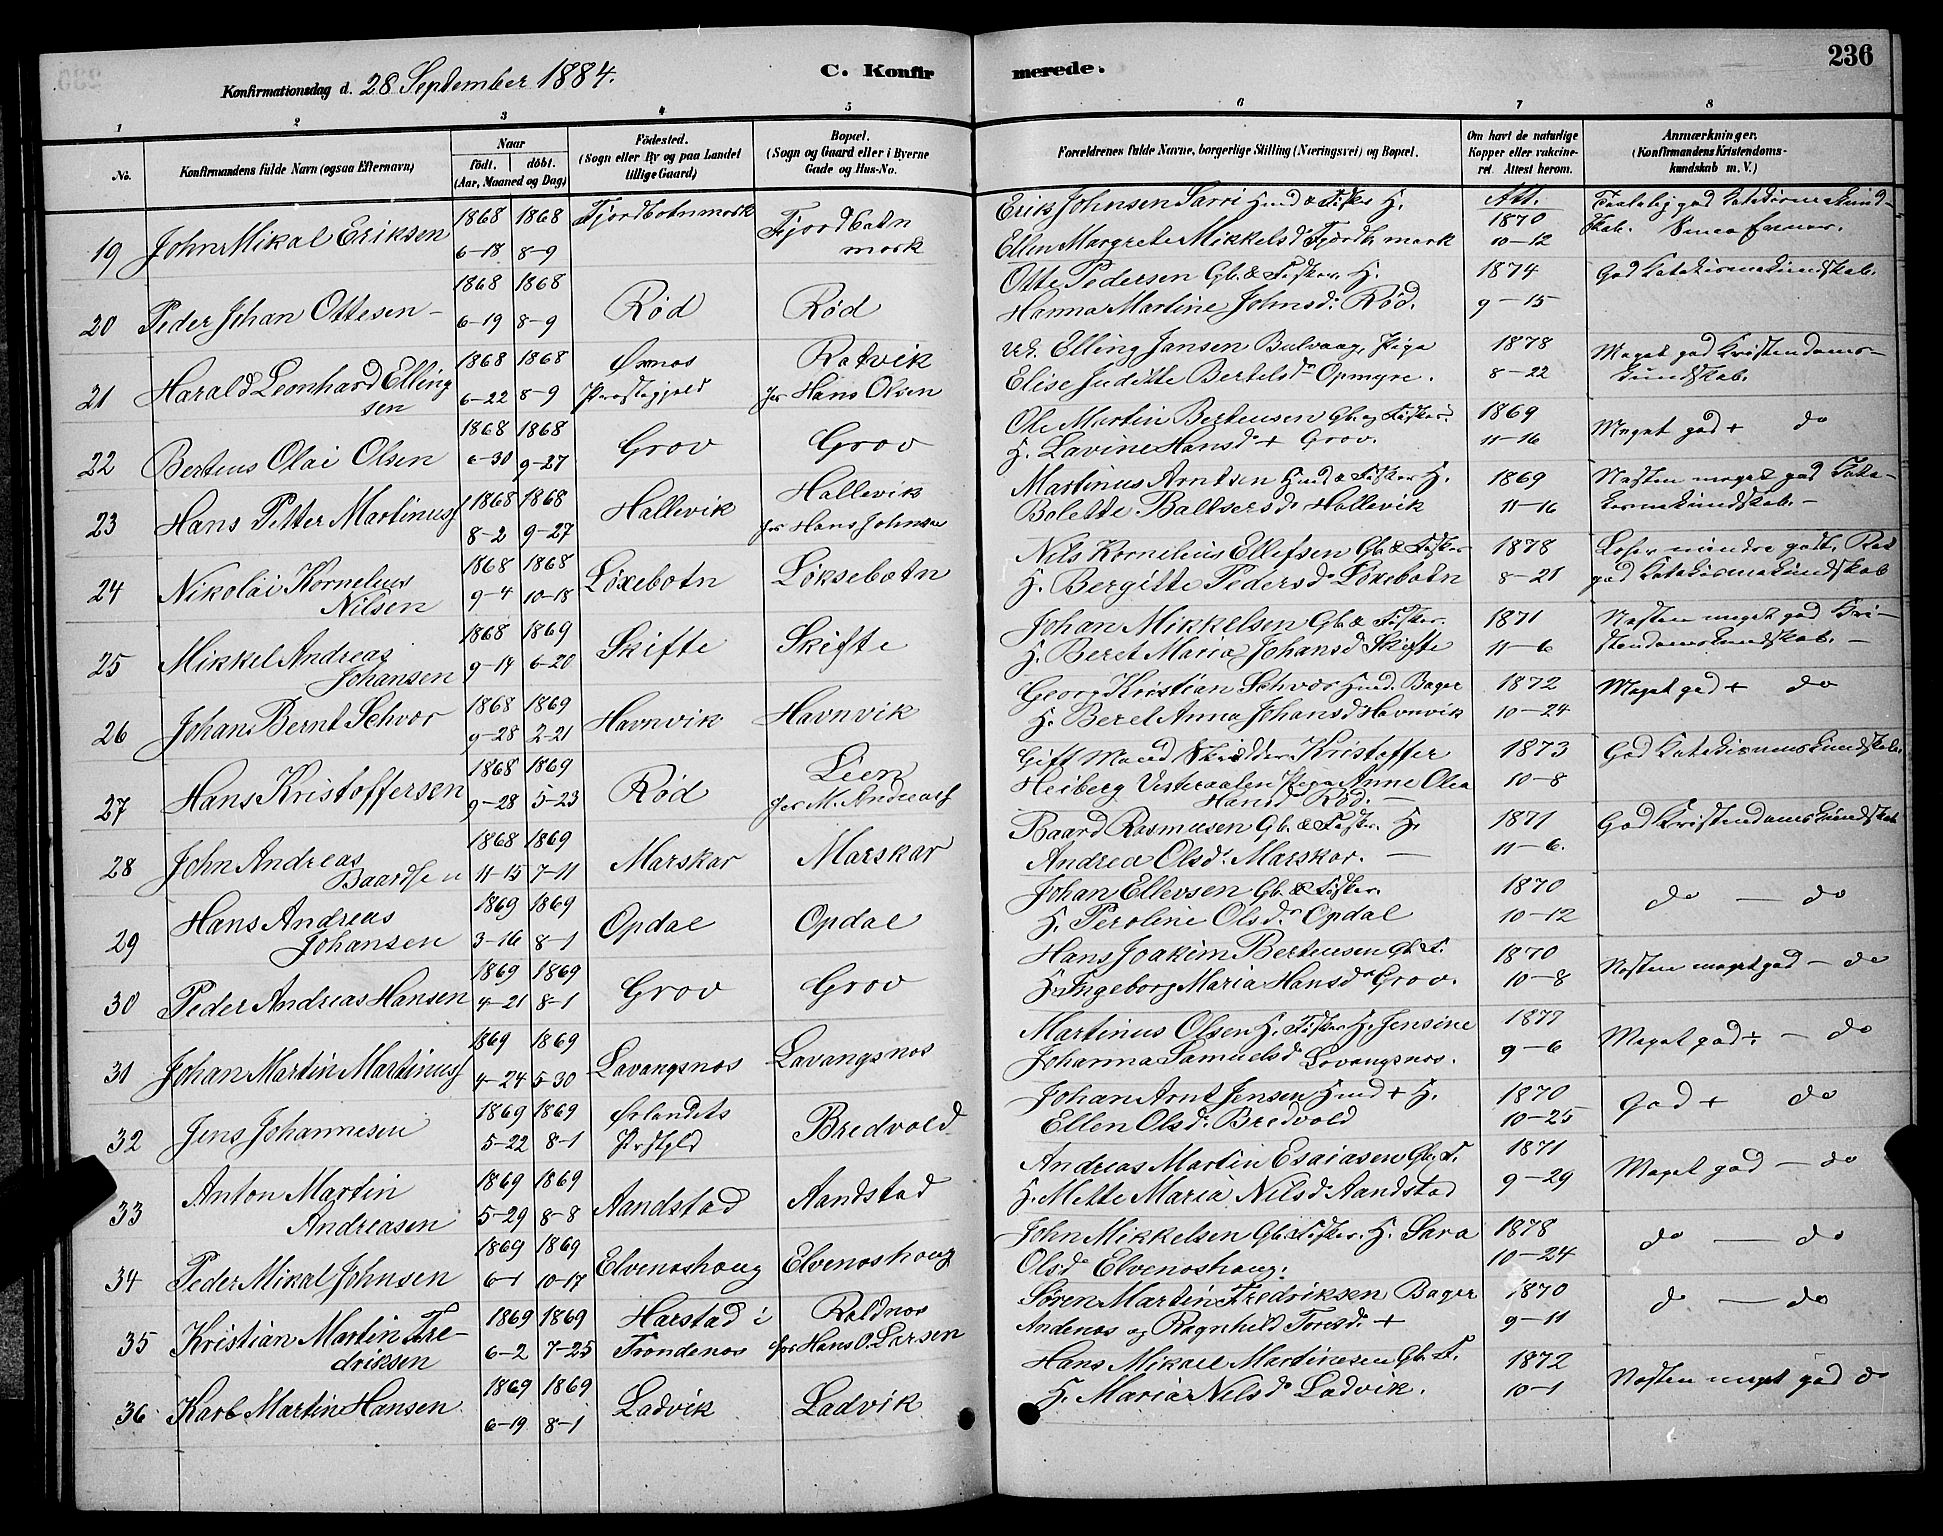 236
Konfirmationsdag d. 28 September 1884.
C. Konfir merede.
1 2 3 4 5 6 7 8
No.
Konfirmandens fulde Navn (ogsaa Efternavn)
Naar
født. døbt.
(Aar, Maaned og Dag)
Fødested.
(Sogn eller By og paa Landet
tillige Gaard)
Bopæl.
(Sogn og Gaard eller i Byerne
Gade og Hus-No.
Forældrenes fulde Navne, borgerlige Stilling (Næringsvei) og Bopæl.
Om havt de naturlige
Kopper eller vakcine-
ret. Attest herom.
Anmærkninger.
(Konfirmandens Kristendoms-
kundskab m. V.)
19 John Mikal Eriksen 1868 6-18 1868 8-9 Fjordbotnmark Fjordbotn mark
Eriks Johnsen Sarri Hmd & Fisker H.
Ellen Margrete Mikkelsd. Fjordb. mark
Att. 1870 10-12
god Katekismekund-
skab.
20 Peder Johan Ottesen 1868 6-19 1868 8-9 Rød Rød
Otte Pedersen Gb. & Fisker. H.
Hanna Martine Johnsd. Rød.
1874 9-15
God Katekismekundskab.
21 Harald Leonhard Elling
sen 1868 6-22 1868 8-9 Øxnes Præstegjeld Rotvik for Hans Olsen
Elling Jansen Bulvaag, Pige
Elise Juditte Bertelsd. Opmyre.
1878 8-22
Meget god Kristendoms-
kundskab.
22 Berteus Olai Olsen 1868 6-30 1868 9-27 Grov Grov
Ole Martin Berteusen Gb. og Fisker.
H. Lavine Hansd. + Grov.
1869 11-16
Meget god + do
23 Hans Petter Martinuss 1868 8-2 1868 9-27 Hallevik Hallevik for Hans Johnsen
Martinus Arntsen Hmd & Fisker H.
Bolette Baltsersd. Hallevik
1869 11-16
Næsten meget god Kate-
kismekundskab. -
24 Nikolai Kornelius
Nilsen 1868 9-4 1868 10-18 Löxebotn Löksebotn
Nils Kornelius Ellefsen Gb. & Fisker
H. Bergitte Pedersd. Löxebotn
1878 8-21
Læser mindre godt.
god Katekismekundskab
25 Mikkel Andreas
Johansen 1868 9-14 1869 6-20 Skifte Skifte
Johan Mikkelsen Gb. & Fisker.
H. Beret Maria Johansd. Skifte
1871 11-6
Næsten meget god Kri-
stendomskundskab. -
26 Johan Bernt Schvor 1868 9-28 1869 2-21 Havnvik Havnvik
Georg Kristian Schvor Hmd. Bager
H. Beret Anna Johansd. Havnvik
1872 10-24
Meget god + do
27 Hans Kristoffersen 1868 9-28 1869 5-23 Rød Lien for M. Andreass
Gift Mand Skrædder Kristoffer
Heiberg Vesteraalen Pige Anne Olea
Hansd. Rød. -
1873 10-8
God Katekismuskundskab.
28 John Andreas
Baardsen 1868 11-15 1869 7-11 Marskar Marskar
Baard Rasmusen Gb. & Fisker. H.
Andrea Olsd. Marskar. -
1871 11-6.
God Kristendomskundskab
29 Hans Andreas
Johansen 1869 3-16 1869 8-1 Opdal Opdal
Johan Ellevsen Gb. & Fisker.
H. Peroline Olsd. Opdal
1870 10-12
do - do
30 Peder Andreas Hansen 1869 4-21 1869 8-1 Grov Grov
Hans Joakim Berteusen Gb. & F.
H. Ingeborg Maria Hansd. Grov.
1870 10-8
Næsten meget god - do
31 Johan Martin Martinuss 1869 4-24 1869 5-30 Lavangsnes Lavangsnes
Martinus Olsen H. Fisker H. Jensine
Johanna Samuelsd. Lavangsnes.
1877 9-6
Meget god + - do
32 Jens Johannesen 1869 5-22 1869 8-1 Ørlandets Prstgld Bredvold
Johan Arnt Jensen Hmd + H.
Ellen Olsd. Bredvold
1870 10-25
God + do
33 Anton Martin
Andreasen 1869 5-29 1869 8-8 Aandstad Aandstad
Andreas Martin Esaiasen Gb. & F.
H. Mette Maria Nilsd. Aandstad
1871 9-29
Meget god - do
34 Peder Mikal Johnsen 1869 6-1 1869 10-17 Elveneshaug Elveneshaug
John Mikkelsen Gb. & Fisker. H. Sara
Olsd. Elveneshaug.
1878 10-24
do - do
35 Kristian Martin Fre-
driksen 1869 6-2 1869 7-25 Harstad i Trondenes Roldnes for Hans O. Larsen
Søren Martin Fredriksen Bager
Andenes og Ragnhild Toresd. +
1870 9-11
do - do
36 Karl Martin Hansen 1869 6-19 1869 8-1 Ladvik Ladvik
Hans Mikael Martinesen Gb. & F.
H. Maria Nilsd. Ladvik.
1872 10-1
Næsten meget god do